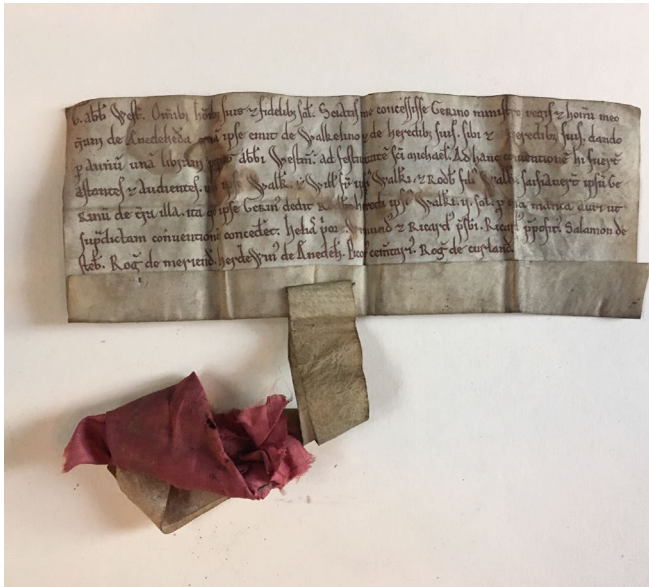 G. abb Westm. Omib hoib suis & fidelib sat. Sciatis me concessisse Gerino ministro regis & homi meo
tram de Knedeheda quā ipse emit de Walkelino de heredib suis. sibi & heredib suis. dando
p annū una libram abbi Westm. ad festiuitatē sci michael. Ad hanc conuentionē hi fuerē
astantes & audientes. Walk. & Will ipsi Walki. & Rodb fili Walki. saisiauerē ipsū Ge
rinū de tra illa. ita qd ipse Gerin dedit ipsi Walki. ii. sol. p una manca auri ut
supdictam conuentionē concedet. Helia por. & Ricard psbi. Ricard ppositi. Salamon de
steb. Rog de meriend. herdewin de Knedeh. Rog de curland